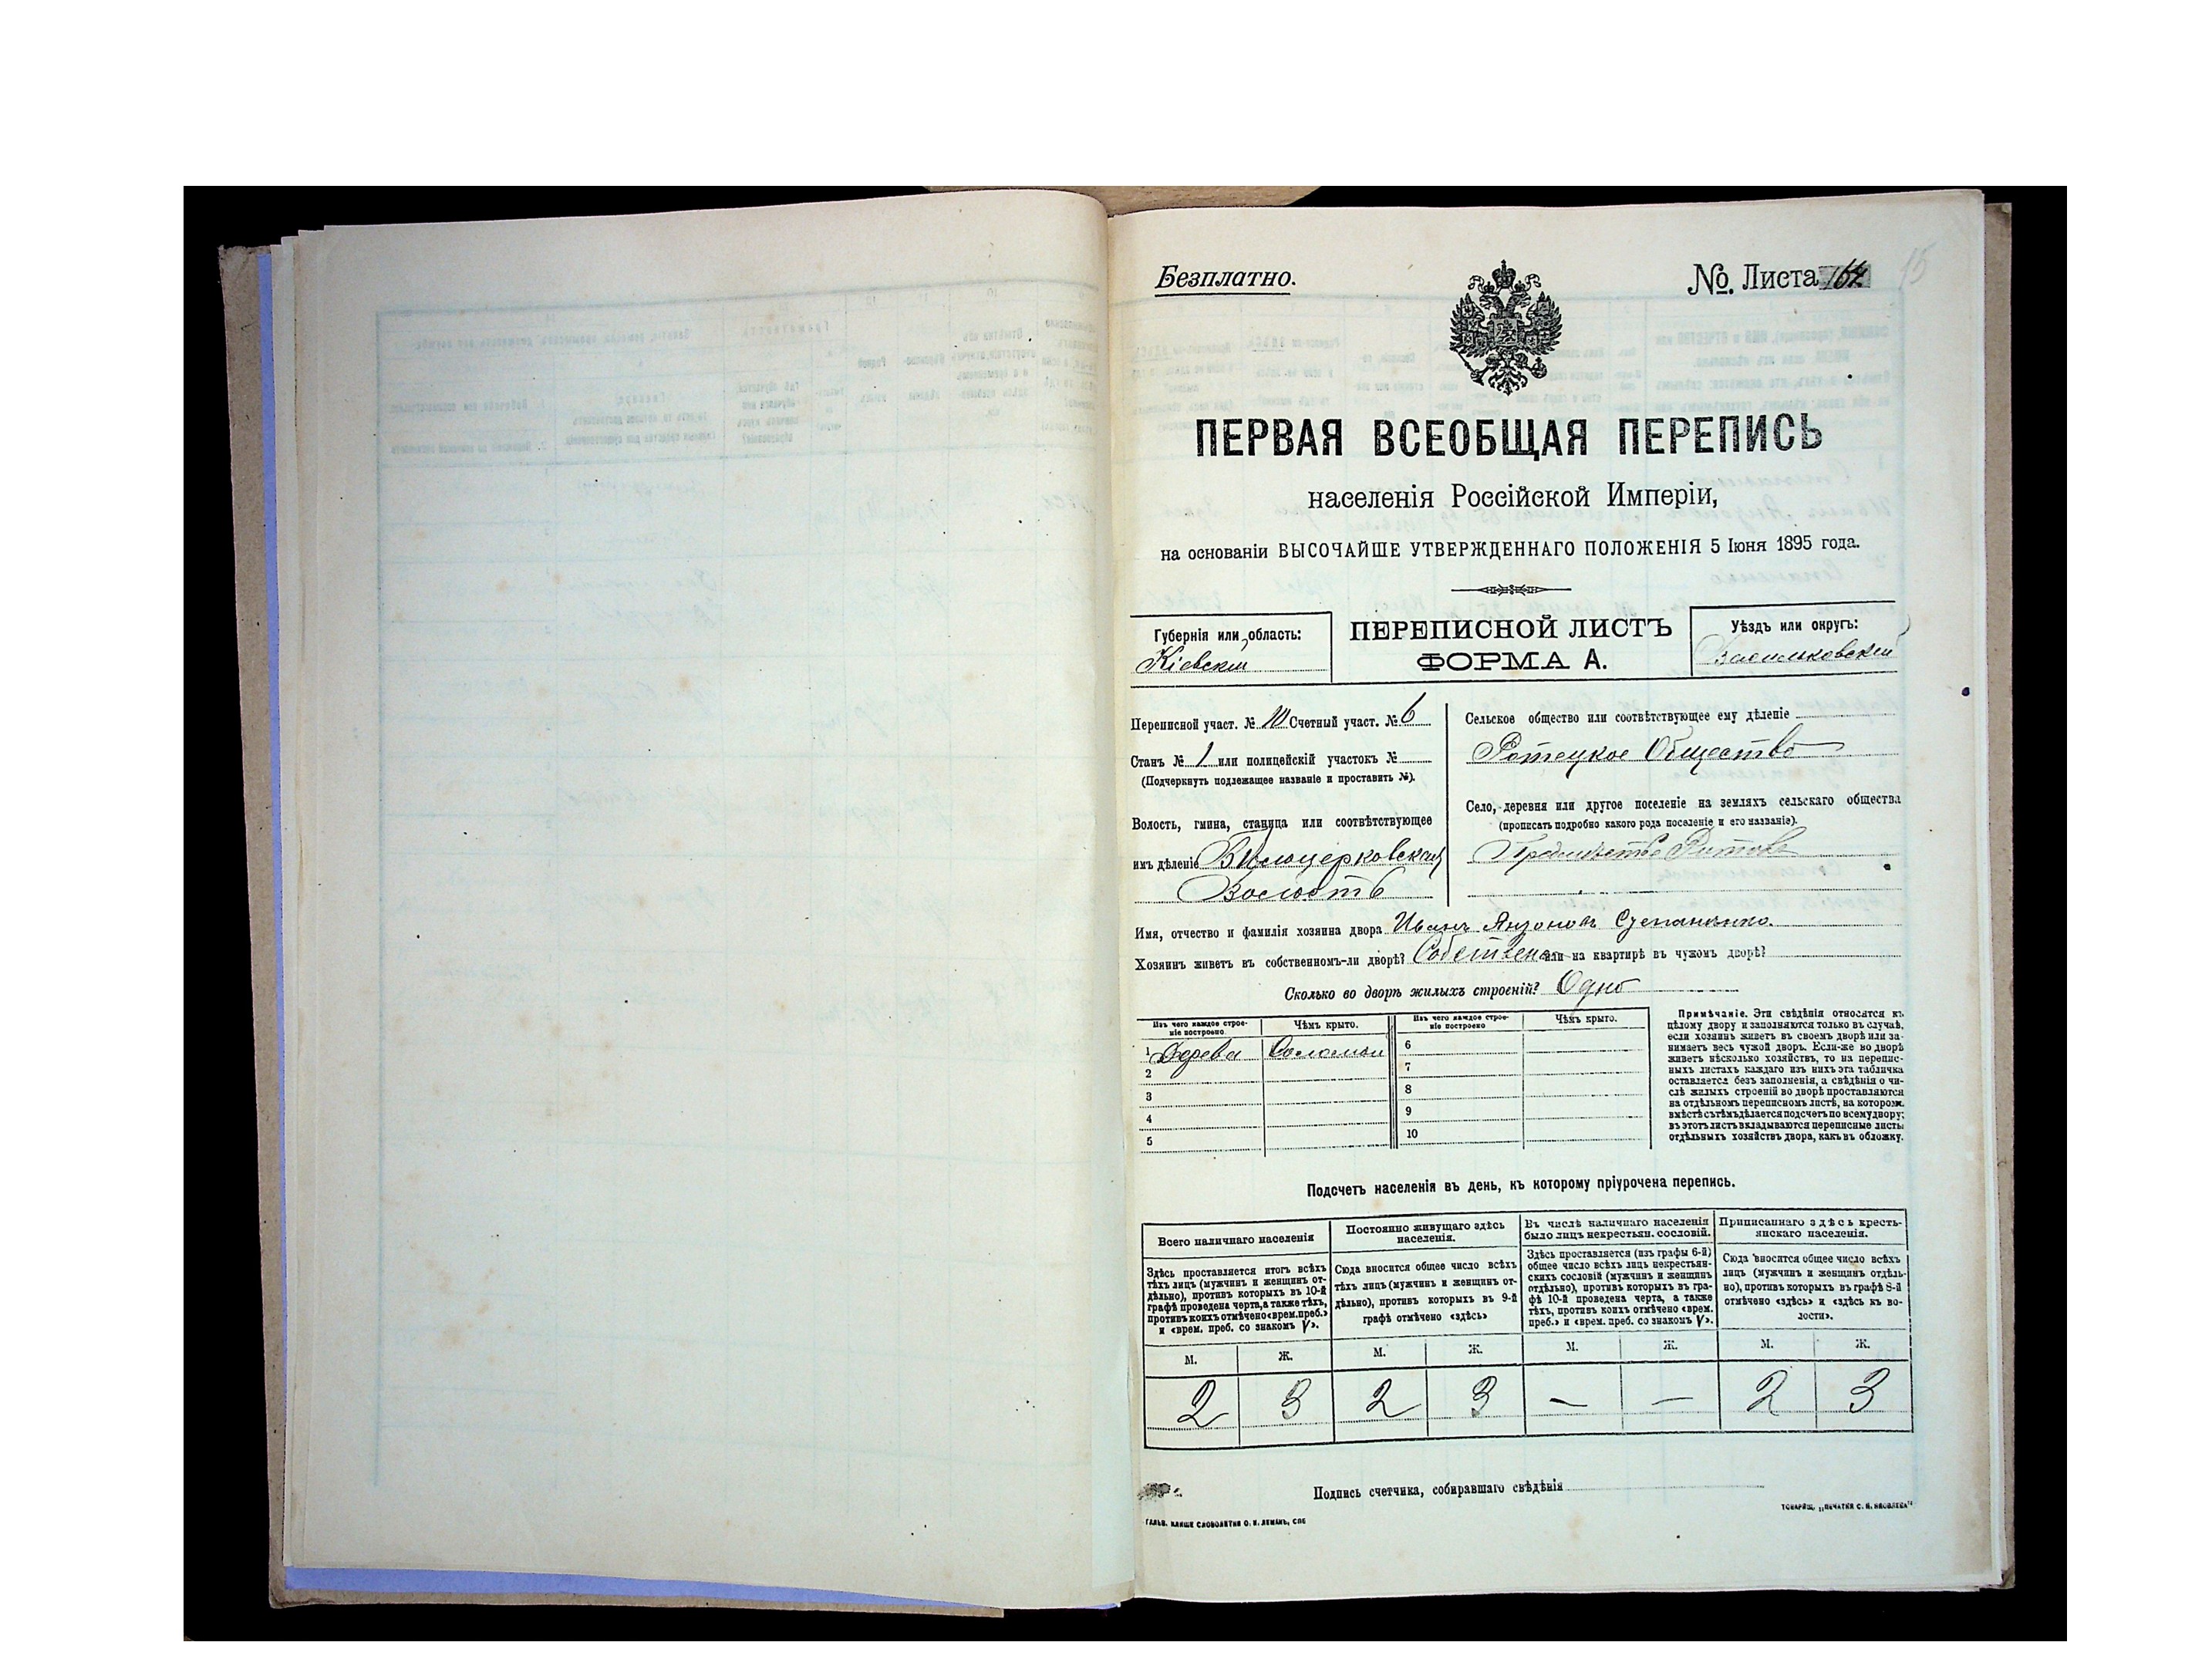 Безплатно.
№. Листа 164
15
ПЕРВАЯ ВСЕОБЩАЯ ПЕРЕПИСЬ
населенія Россійской Имперіи,
на основаніи ВЫСОЧАЙШЕ УТВЕРЖДЕННАГО ПОЛОЖЕНІЯ 5 Іюня 1895 года.
Губернія или область:
Кіевскій
ПЕРЕПИСНОЙ ЛИСТЪ
ФОРМА А.
Уѣздъ или округъ:
Васильковскій
Переписной участ. № 10 Счетный участ. № 6
Станъ № 1 или полицейскій участокъ №
(Подчеркнуть подлежащее названіе и проставить №).
Волость, гмина, станица или соотвѣтствующее
имъ дѣленіе Бѣлоцерковская
Волость
Сельское общество или соотвѣтствующее ему дѣленіе
Ротецкое Общество
Село, деревня или другое поселеніе на земляхъ сельскаго общества
(прописать подробно какого рода поселеніе и его названіе).
Предмѣстье Ротовка
Имя, отчество и фамилія хозяина двора Иванъ Антоновъ Степаненко.
Хозяинъ живетъ въ собственномъ-ли дворѣ? Собствен или на квартирѣ въ чужомъ дворѣ?
Сколько во дворѣ жилыхъ строеній? Одно
Изъ чего каждое строе-
ніе построено
Чѣмъ крыто.
Изъ чего каждое строе-
ніе построено
Чѣмъ крыто.
1 Дерева Соломой
2
3
4
5
6
7
8
9
10
Примѣчаніе. Эти свѣдѣнія относятся къ
цѣлому двору и заполняются только въ случаѣ,
если хозяинъ живетъ въ своемъ дворѣ или за-
нимаетъ весь чужой дворъ. Если-же во дворѣ
живетъ нѣсколько хозяйствъ, то на перепис-
ныхъ листахъ каждаго изъ нихъ эта табличка
оставляется безъ заполненія, а свѣдѣнія о чи-
слѣ жилыхъ строеній во дворѣ проставляются
на отдѣльномъ переписномъ листѣ, на которомъ
вмѣстѣ съ тѣмъ дѣлается подсчетъ по всему двору;
въ этотъ листъ вкладываются переписные листы
отдѣльныхъ хозяйствъ двора, какъ въ обложку.
Подсчетъ населенія въ день, къ которому пріурочена перепись.
Всего наличнаго населенія
Постоянно живущаго здѣсь
населенія.
Въ числѣ наличнаго населенія
было лицъ некрестьян. сословій.
Приписаннаго здѣсь кресть-
янскаго населенія.
Здѣсь проставляется итогъ всѣхъ
тѣхъ лицъ (мужчинъ и женщинъ от-
дѣльно), противъ которыхъ въ 10-й
графѣ проведена черта, а также тѣхъ,
противъ коихъ отмѣчено «врем. преб.»
и «врем. преб. со знакомъ V».
Сюда вносится общее число всѣхъ
тѣхъ лицъ (мужчинъ и женщинъ от-
дѣльно), противъ которыхъ въ 9-й
графѣ отмѣчено «здѣсь»
Здѣсь проставляется (изъ графы 6-й)
общее число всѣхъ лицъ некрестьян-
скихъ сословій (мужчинъ и женщинъ
отдѣльно), противъ которыхъ въ гра-
фѣ 10-й проведена черта, а также
тѣхъ, противъ коихъ отмѣчено «врем.
преб.» и «врем. преб. со знакомъ V».
Сюда вносится общее число всѣхъ
лицъ (мужчинъ и женщинъ отдѣль-
но), противъ которыхъ въ графѣ 8-й
отмѣчено «здѣсь» и «здѣсь къ во-
лости».
М. Ж. М. Ж. М. Ж. М. Ж.
2 3 2 3 — — 2 3
Подпись счетчика, собиравшаго свѣдѣнія
ГАЛЬВ. КЛИШЕ СЛОВОЛИТНИ О. И. ЛЕМАНЪ, СПБ
ТОВАРИЩ. „ПЕЧАТНЯ С. П. ЯКОВЛЕВА“